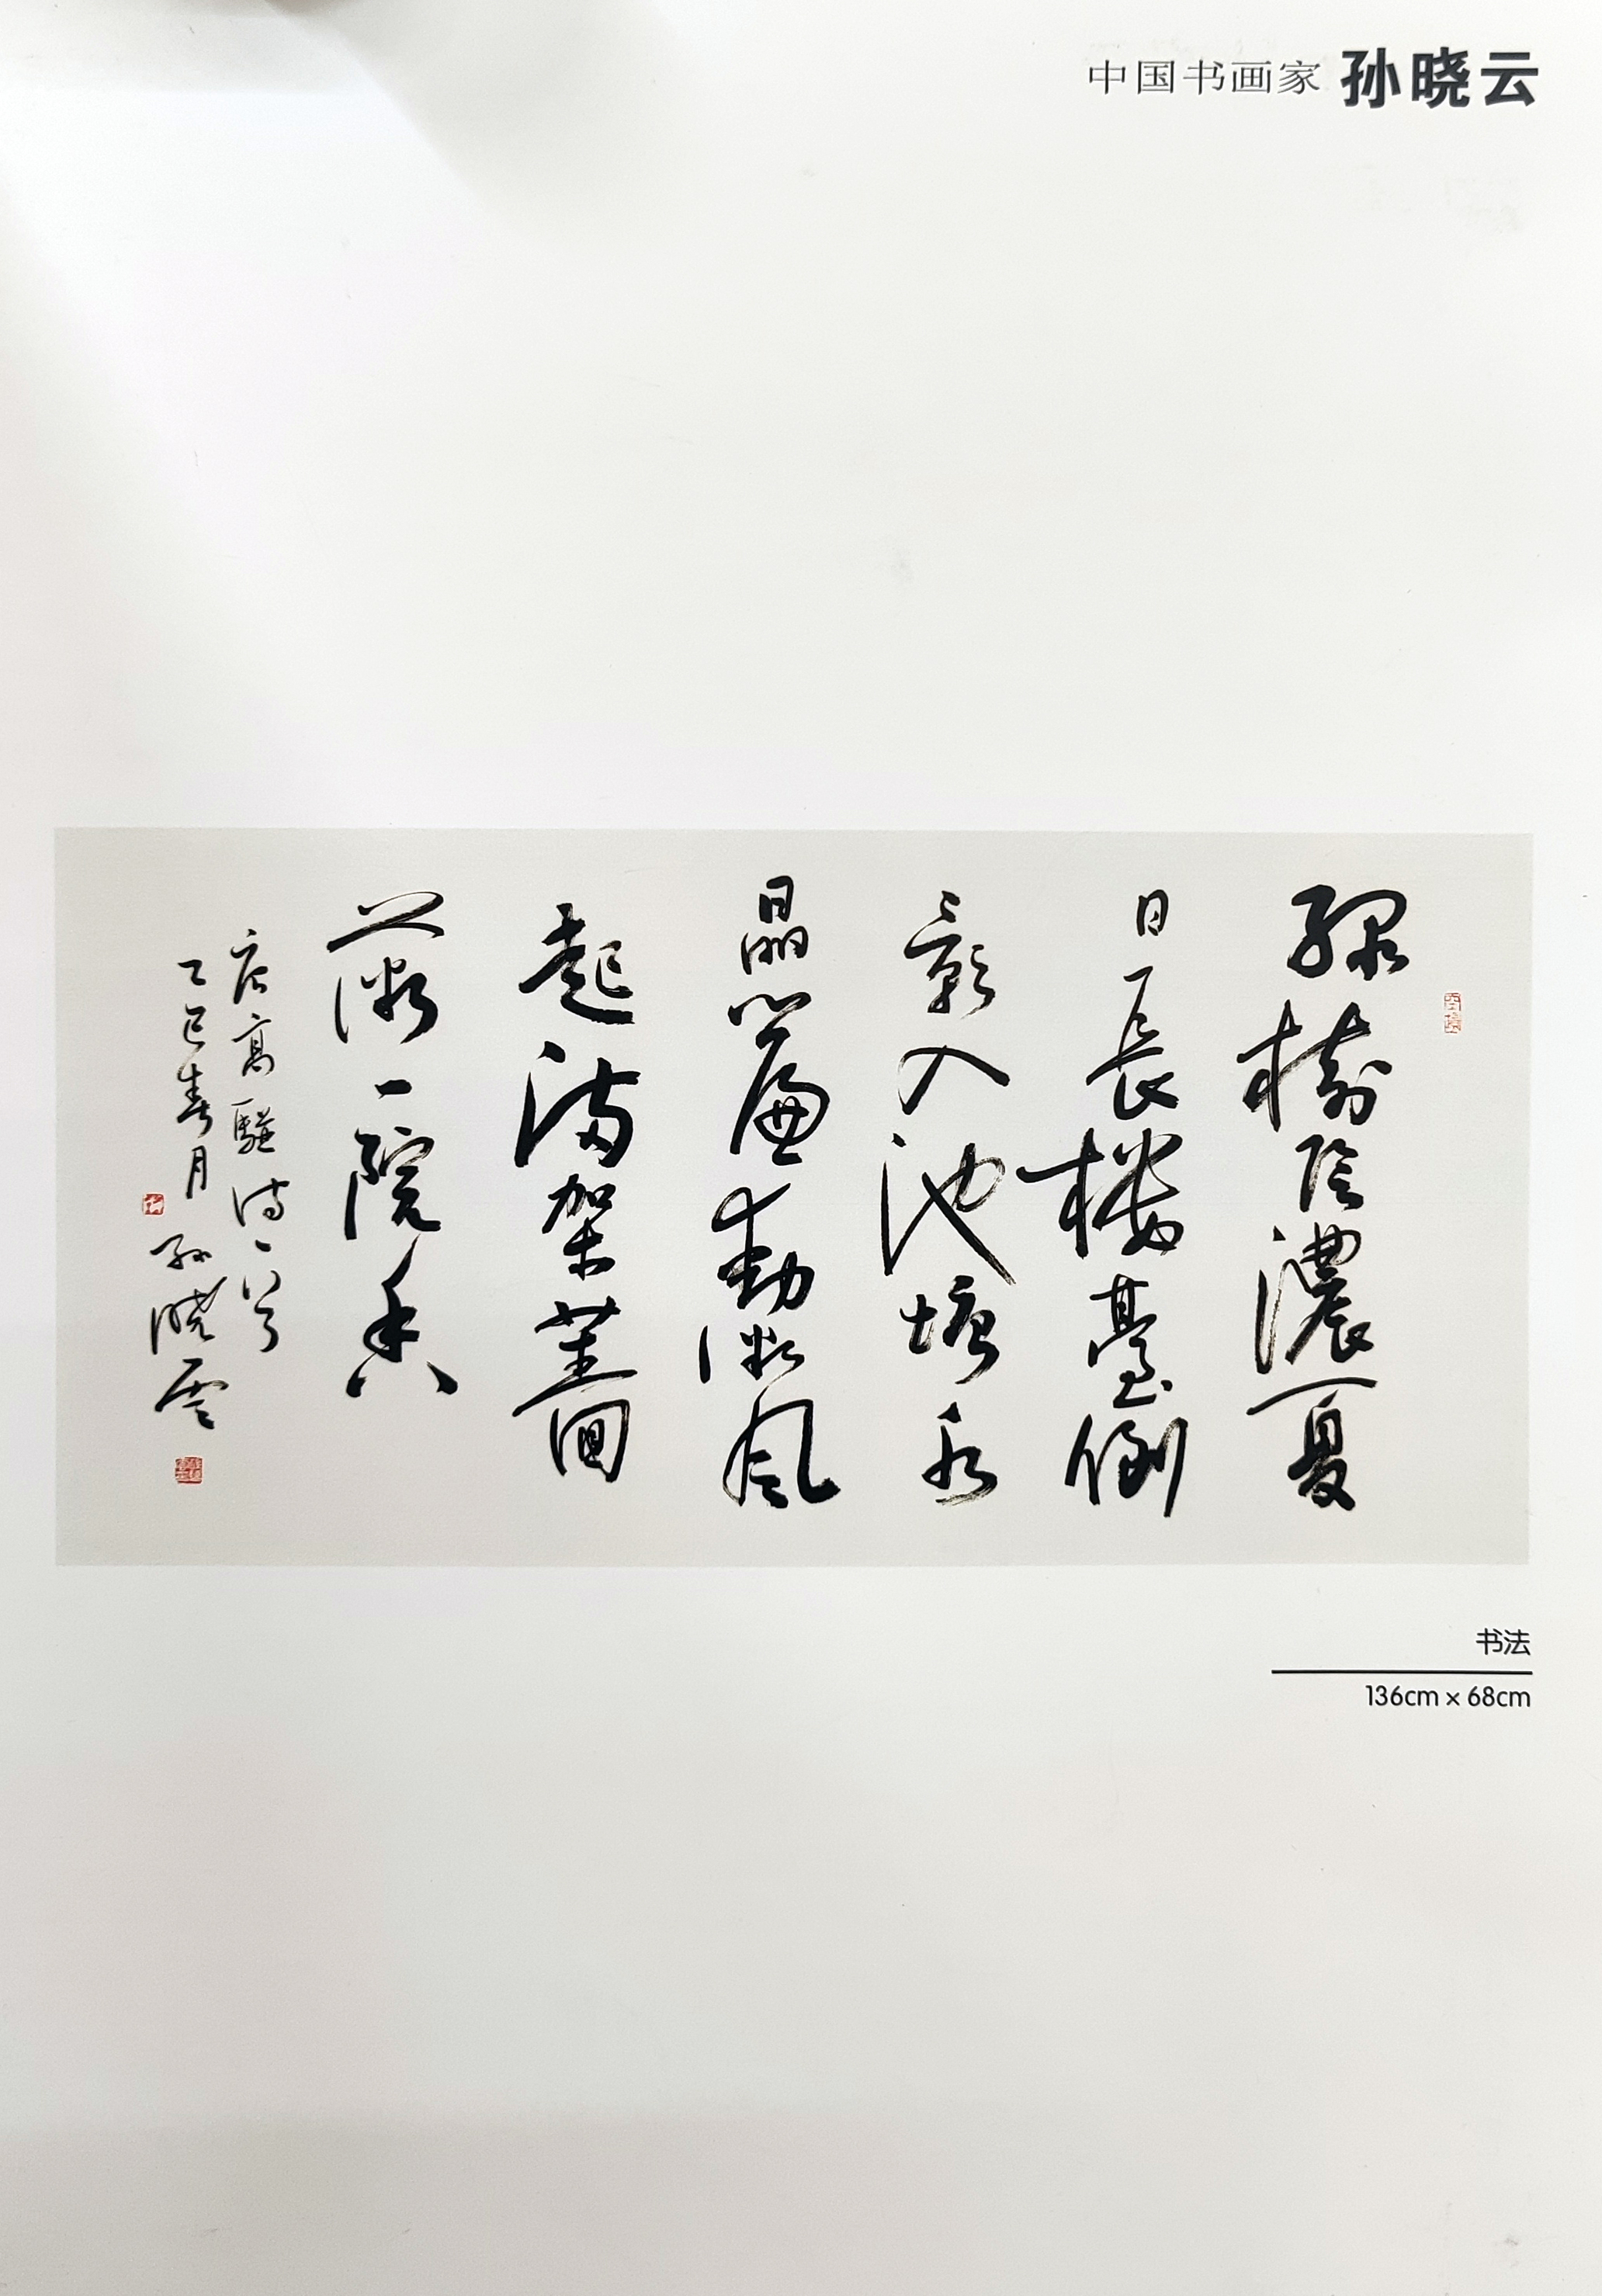 中国书画家 孙晓云
綠樹陰濃夏
日長樓臺倒
影入池塘水
晶簾動微風
起滿架薔
薇一院香
唐高駢詩一首
乙巳春月 孙曉雲
书法
136cm × 68cm